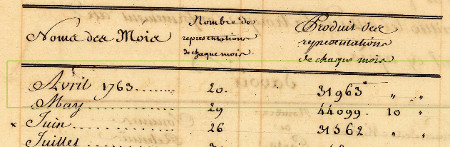 Noms des Mois
Nombre de
representations
de chaque mois
Produit des
representations
de chaque mois
Avril 1763........ 20. 31963 " "
May .............. 29 44099. 10 "
Juin ............. 26 31562 " "
Juillet